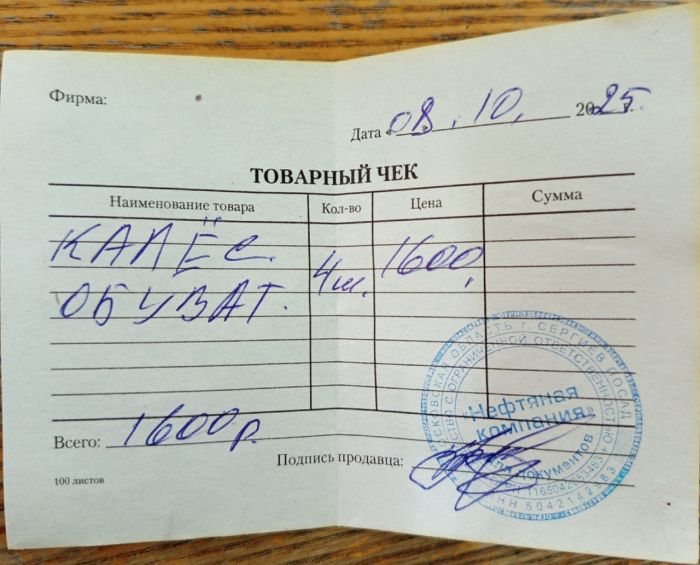 Фирма:
Дата « 08 » . 10. 2025 г.
ТОВАРНЫЙ ЧЕК
Наименование товара Кол-во Цена Сумма
КАЛЁС. 4 ш. 1600,
ОБУВАТ.
Всего: 1600 р.
Подпись продавца:
100 листов
МОСКОВСКАЯ ОБЛАСТЬ г. СЕРГИЕВ ПОСАД
ОБЩЕСТВО С ОГРАНИЧЕННОЙ ОТВЕТСТВЕННОСТЬЮ
«Нефтяная
компания»
Для документов
ИНН 5042142183